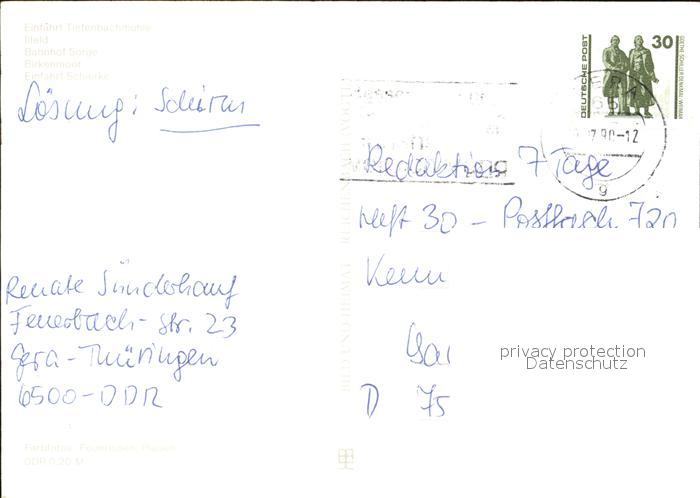 Einfahrt Tiefenbachmühle
Ilfeld
Bahnhof Sorge
Birkenmoor
Einfahrt Schierke
Lösung: Schirm
DEUTSCHE POST
30
GOETHE-SCHILLER-DENKMAL WEIMAR
GERA 1
65
7.90-12
g
Redaktion 7 Tage
Heft 30 - Postfach 720
Kenn
D 75
Renate Sünderhauf
Feuerbach-str. 23
Gera-Thüringen
6500-DDR
privacy protection
Datenschutz
BILD UND HEIMAT REICHENBACH (VOGTL)
DDR 0,20 M